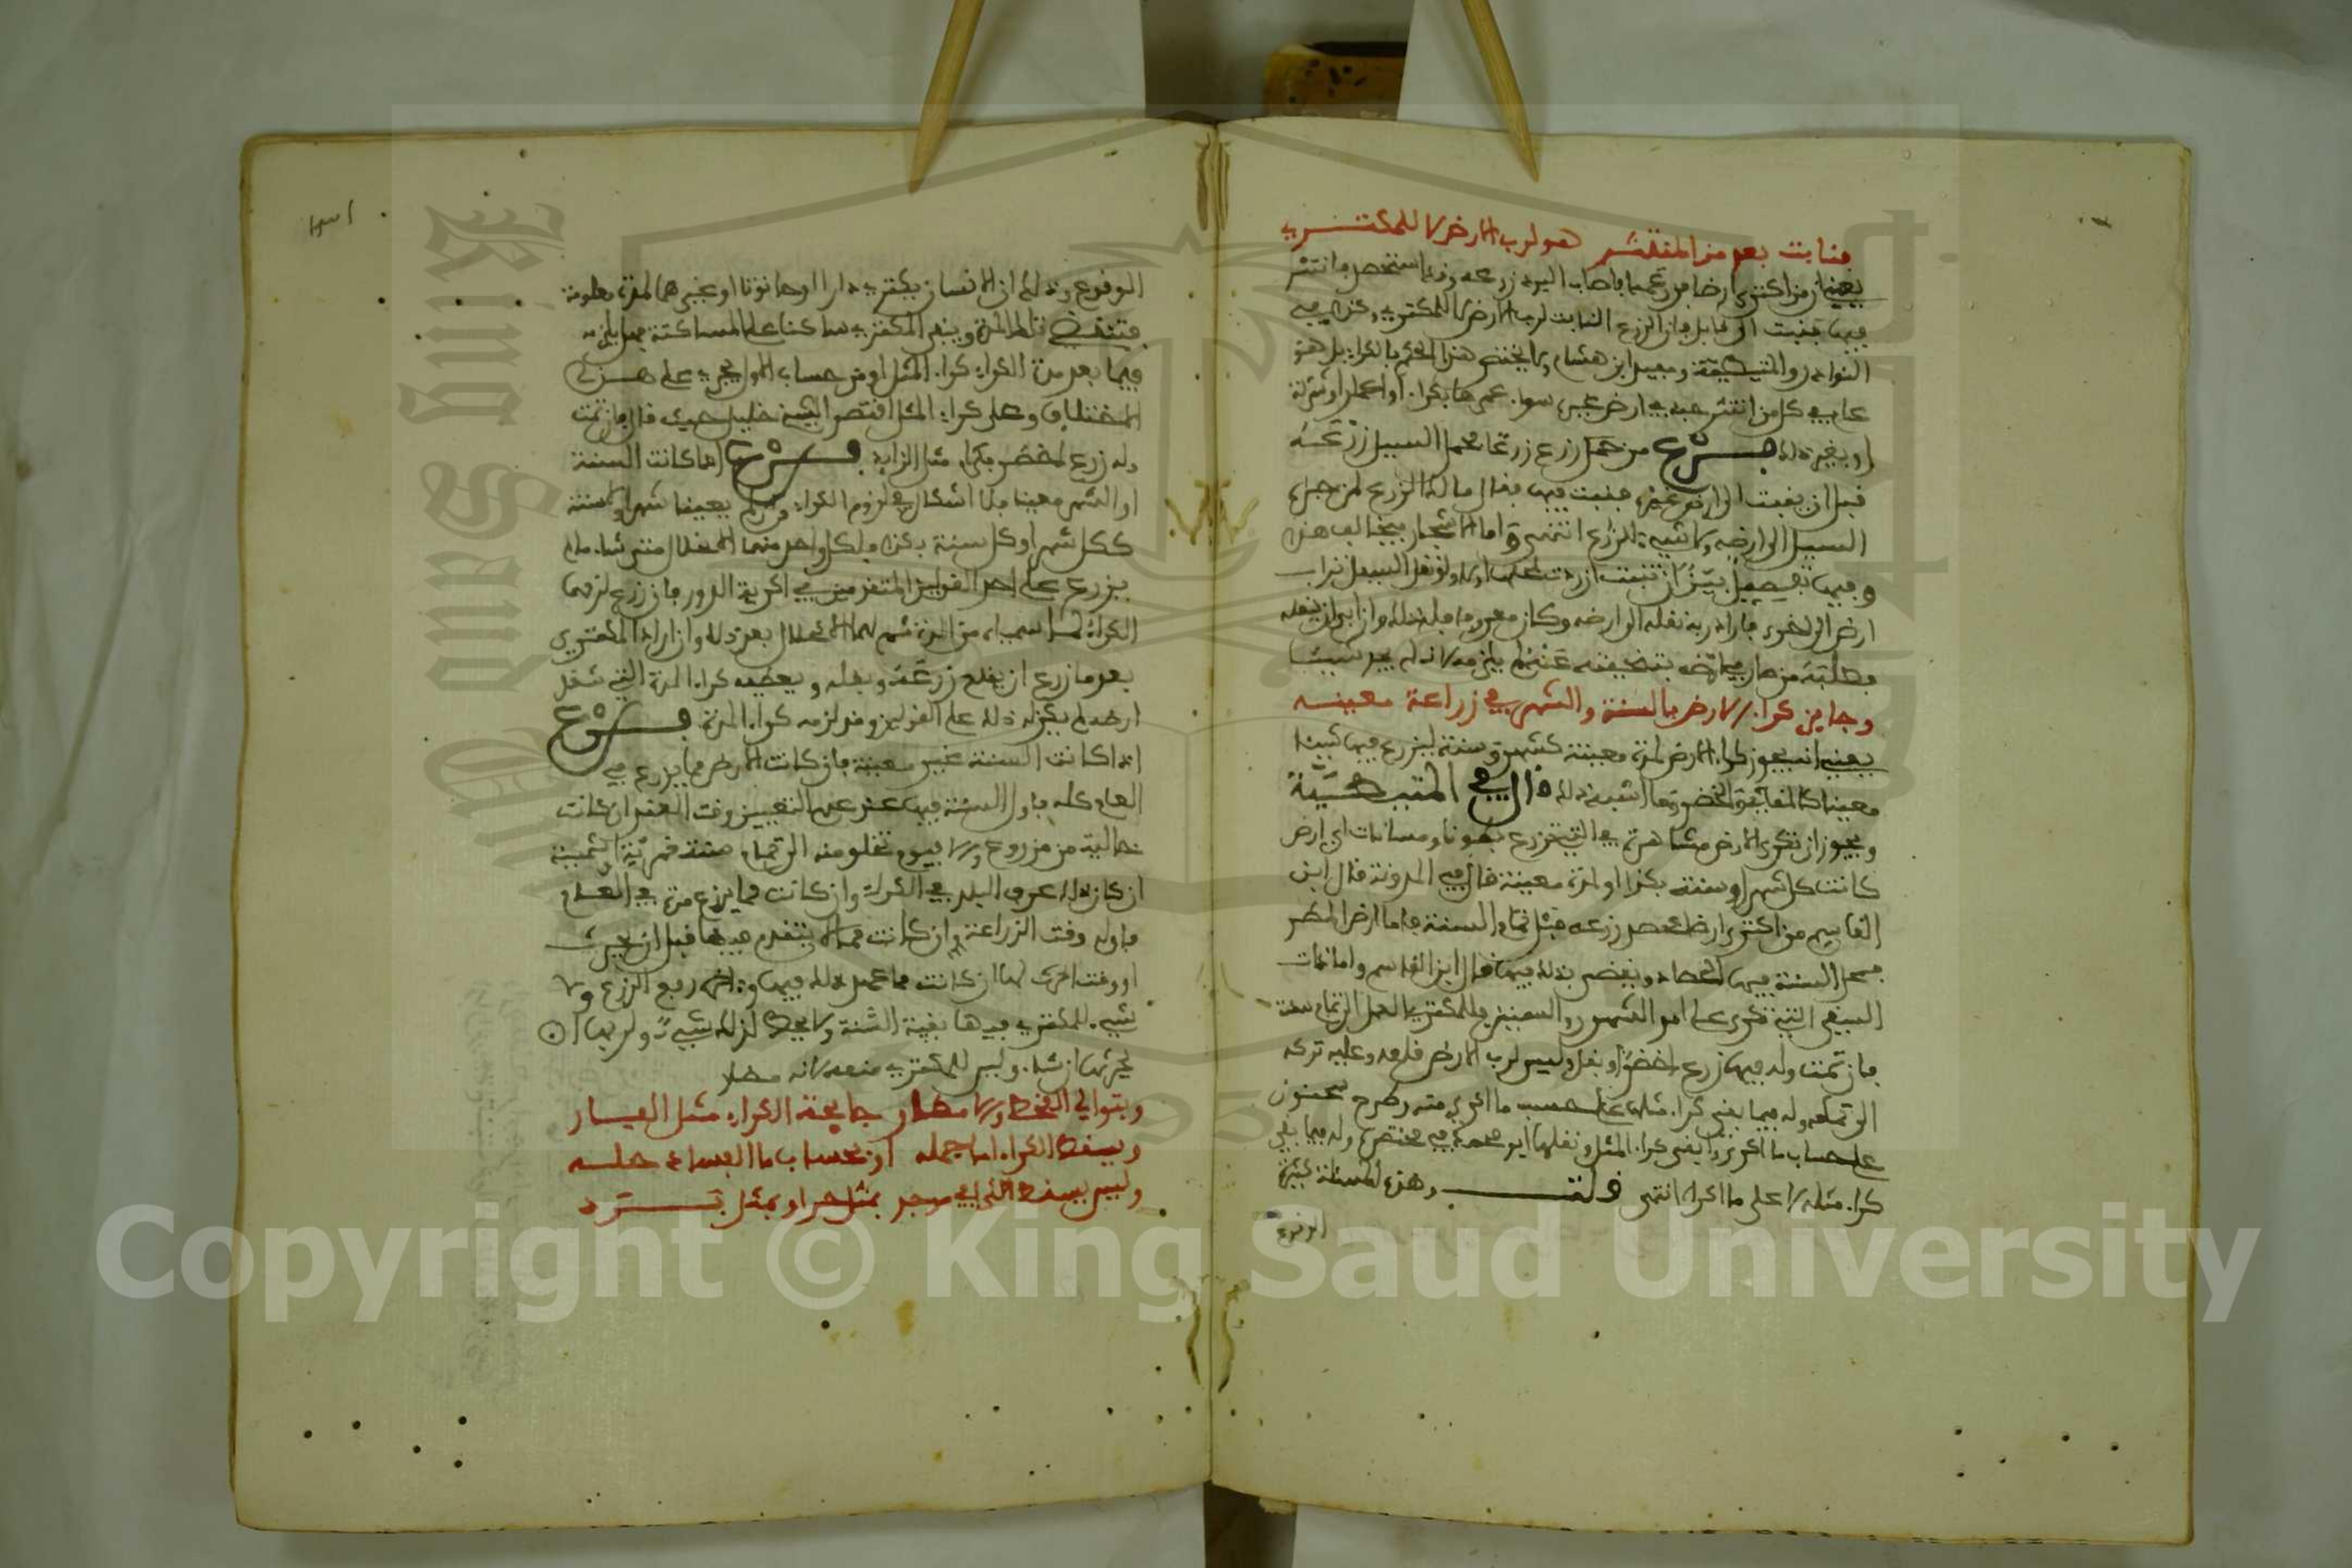 فنابت بعد من المنتشر هو لرب الارض لا للمكتري
يعني ان من اكترى ارضا فزرعها فاصاب البرد زرعه وقد استحصد فانتثر
فيها فنبت في قابل فان الزرع النابت لرب الارض لا للمكتري
النوادر والمتيطية ومعين ابن هشام ولا يختص هذا الحكم بالكراء بل هو
عام في كل من انتثر حبه في ارض غيره سواء عمرها بكراء او اعمار او شركة
او بغير ذلك فرع من حمل زرع زرعا حمل السيل زرعه
قبل ان ينبت الى ارض غيره فنبت فيها فقال مالك الزرع لمن جره
السيل الى ارضه ولا شيء للزارع انتهى واما الاشجار فبخلاف هذا
وفيها تفصيل بين ان تنبت ان ردت لمحلها او لا ولو نقل السيل تراب
ارض الى اخرى فاراد ربه نقله الى ارضه وكان معروفا فله ذلك وان ابى ان ينقله
فطلبه من صار في ارضه بتنحيته عنه لم يلزمه لانه لم يجر شيئا
وجايز كراء الارض بالسنة والشهر في زراعة معينه
يعني انه يجوز كراء الارض لمدة معينة كشهر وسنة ليزرع فيها شيئا
معينا كالمقاثي والخضر وما اشبه ذلك قال في المتيطية
ويجوز ان تكرى الارض مشاهرة في التي تزرع بطونا ومسانات اي ارض
كانت كل شهر او سنة بكذا او لمدة معينة قال في المدونة قال ابن
القاسم من اكترى ارضا فحصد زرعه قبل تمام السنة فاما ارض المطر
فمحل السنة فيها الحصاد وينقضي بذلك فيها قال ابن القاسم واما ذات
السقي التي تكرى على امد الشهور والسنين فللمكتري العمل الى تمام سنته
فان تمت وله فيها زرع اخضر او بقل فليس لرب الارض قلعه وعليه تركه
الى تمامه وله فيما بقي كراء مثلها على حسب ما اكرى منه وطرح سحنون
على حساب ما اكرى وابقى كراء المثل ونقلها ابو محمد في مختصره وله فيما بقي
كراء مثله لا على ما اكراه انتهى قلت وهذه المسئلة كثيرة
الوقوع
الوقوع وذلك ان الانسان يكتري دارا او حانوتا او غيرهما لمدة معلومة
فتنقضي تلك المدة ويبقى المكتري ساكنا على المساكتة فهل يلزمه
فيما بعد مدة الكراء كراء المثل او من حساب الاول يجري على هذا
الاختلاف وعلى كراء المثل اقتصر الشيخ خليل حيث قال فان تمت
وله زرع اخضر فكراء مثل الزايد فرع اذا كانت السنة
او الشهر معينا فلا اشكال في لزوم الكراء وان لم يعينا شهرا ولا سنة
ككل شهر او كل سنة بكذا فلكل واحد منهما الانحلال متى شاء ما لم
يزرع على احد القولين المتقدمين في اكرية الدور فان زرع لزمها
الكراء بعد ذلك وان اراد المكتري
بعد ما زرع ان يقلع زرعه وبقله ويعطيه كراء المدة التي شغل
ارضه لم يكن له ذلك على القولين وقد لزمه كراء المدة فرع
اذا كانت السنة غير معينة فان كانت الارض مما يزرع في
العام كله فاول السنة فيها عند عدم التعيين وقت العقد ان كانت
خالية من مزروع والا فيوم تخلو منه الى تمام سنة قمرية او شمسية
ان كان ذلك عرف البلد في الكراء وان كانت مما يزرع مرة في العام
فاوله وقت الزراعة وان كانت مما لا يتقدم فيها قبل ان يحرث
او وقت احرى لها ان كانت مما عمل ذلك فيها واخره رفع الزرع ولا
شيء للمكتري فيها بقية السنة ولا يحط لذلك شيء ولربها
يحرثها ان شاء وليس للمكتري منعه لانه مضار
وبتوالي القحط والامطار جايحة الكراء مثل الفار
ويسقط الكراء اما جمله او بحساب ما الفساد حله
وليس يسقط الكراء في موجد بمثل صر او بمثل برد